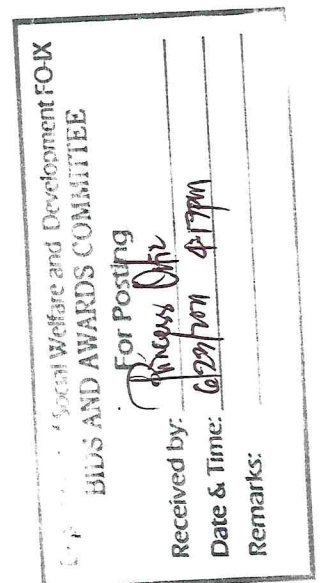 Social Welfare and Development FO-IX
BIDS AND AWARDS COMMITTEE
For Posting
Received by: Princess
Date & Time: 4:17pm
Remarks: